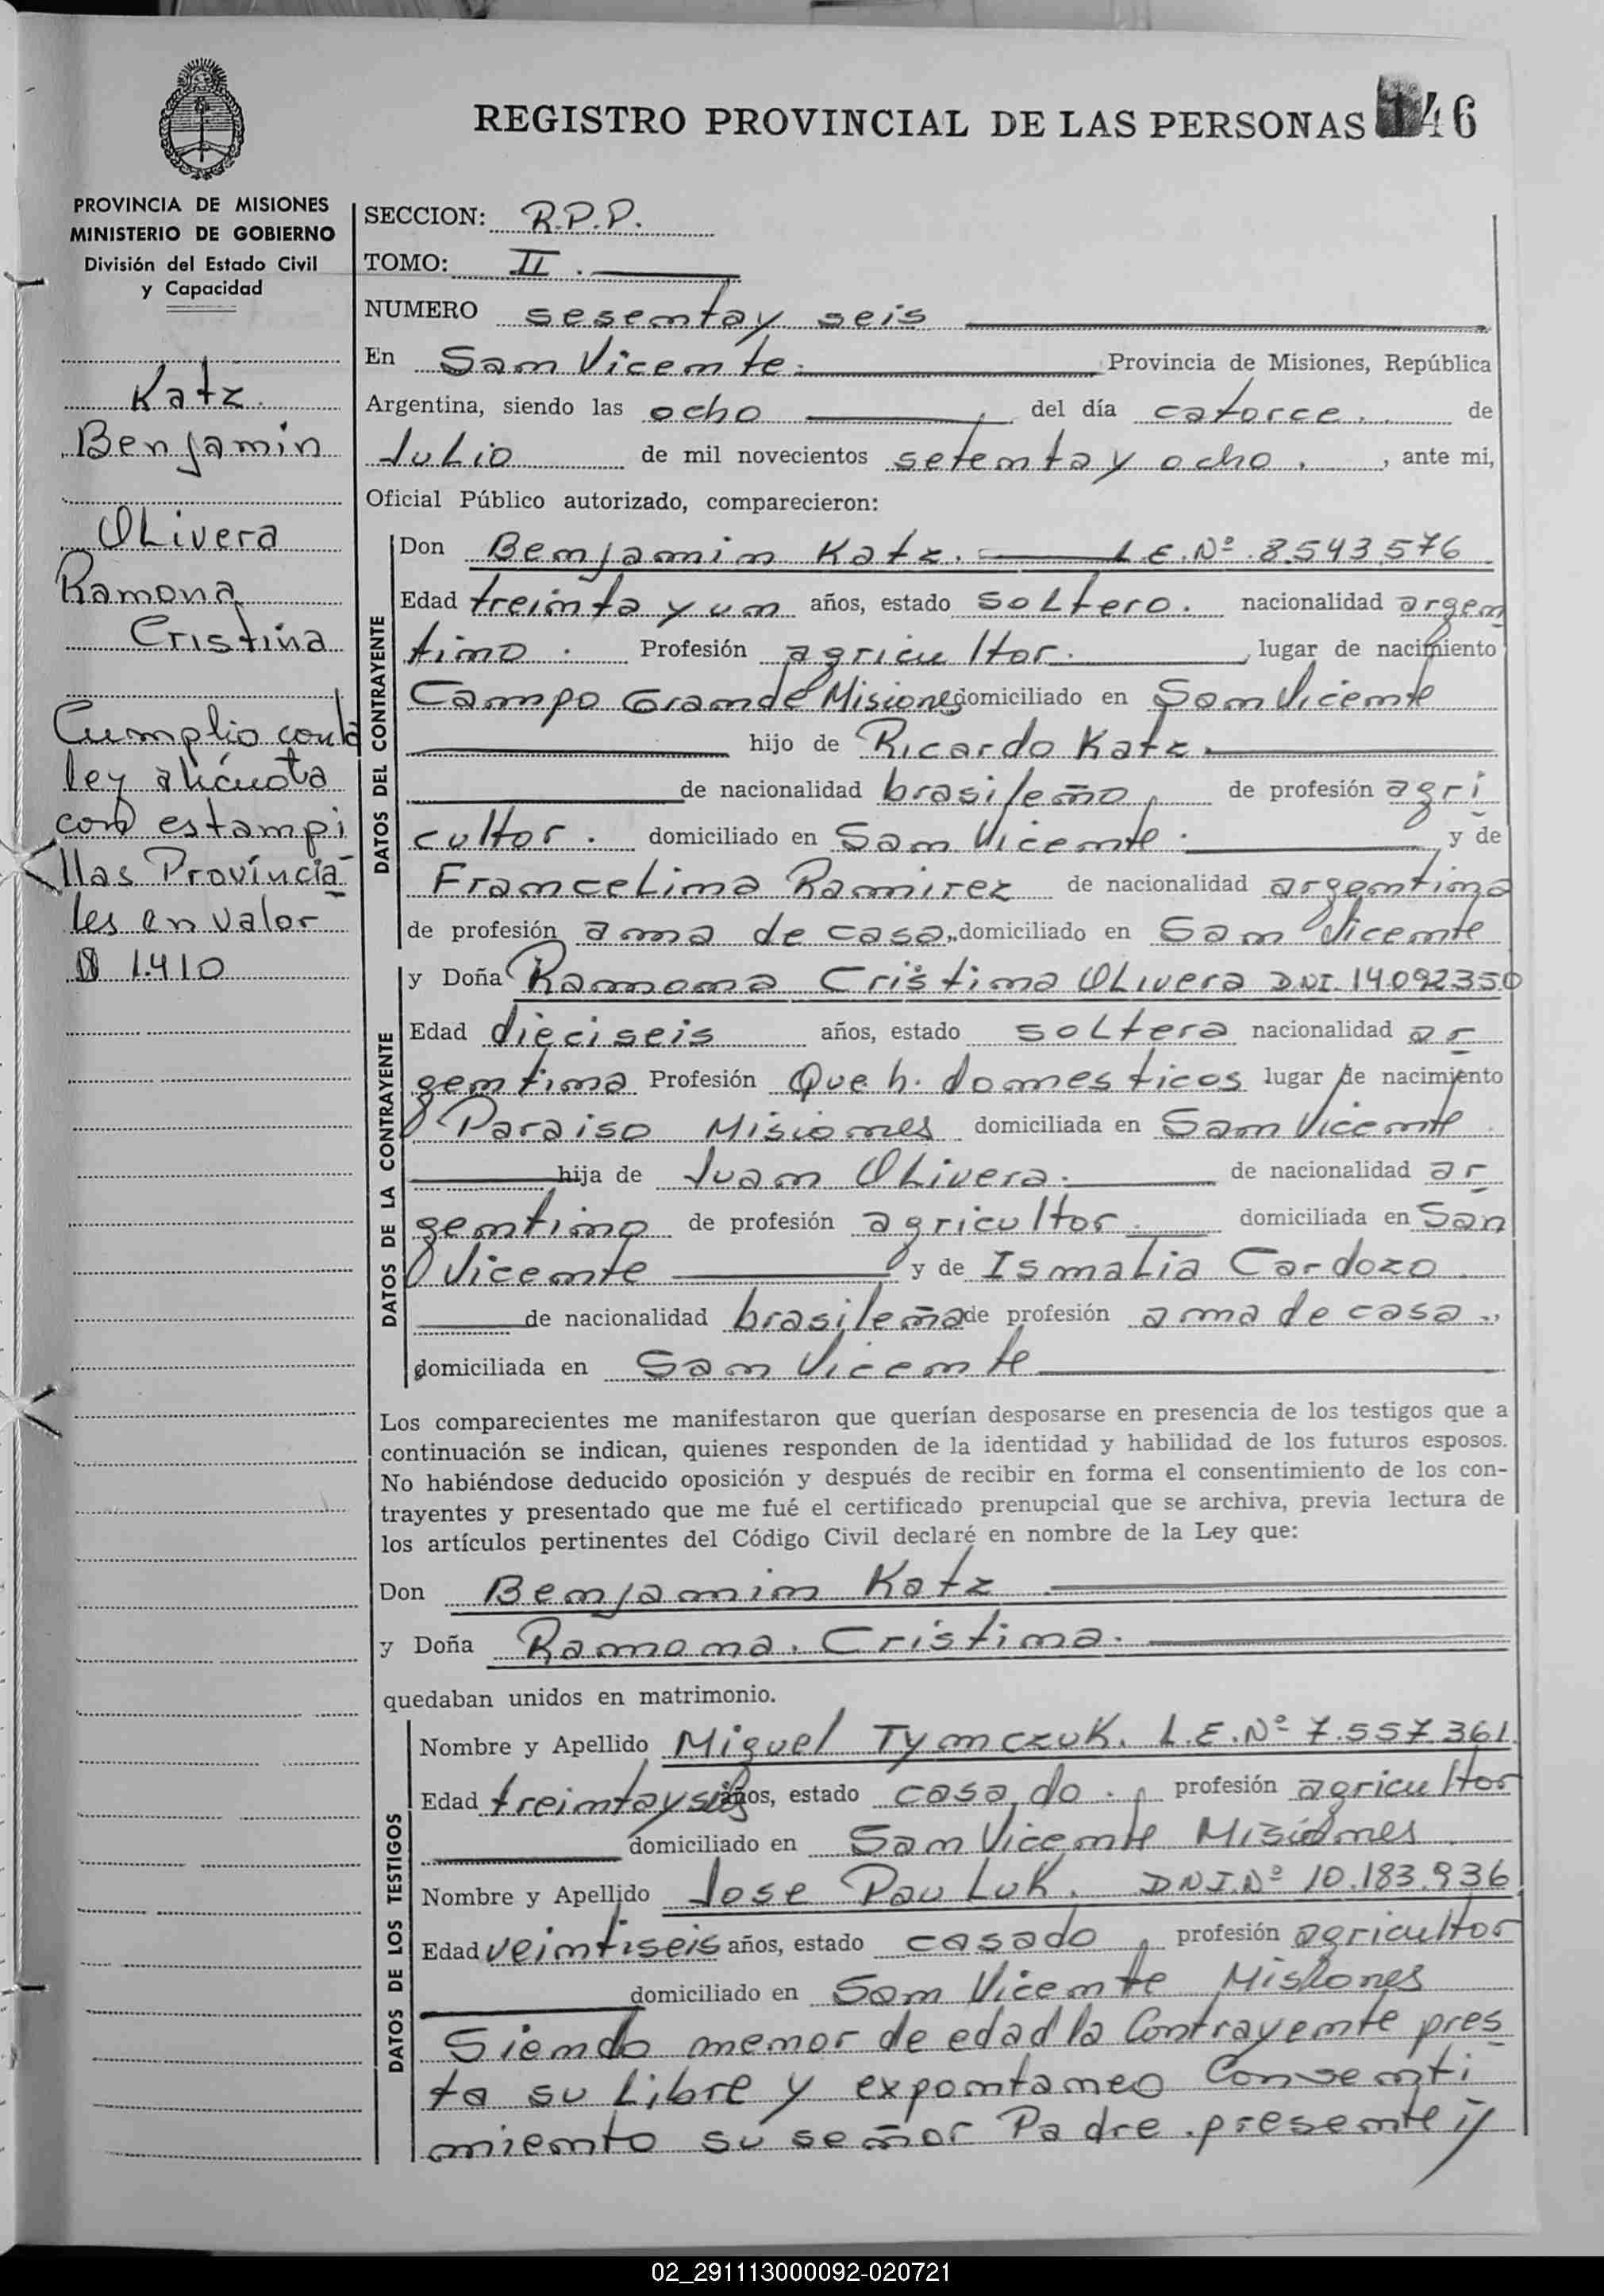 REGISTRO PROVINCIAL DE LAS PERSONAS 146
PROVINCIA DE MISIONES
MINISTERIO DE GOBIERNO
División del Estado Civil
y Capacidad
Katz
Benjamin
Olivera
Ramona
Cristina
Cumplio con la
ley alicuota
con estampi
llas Provincia
les en valor
$ 1.410
SECCION: R.P.P.
TOMO: II.
NUMERO sesenta y seis
En San Vicente. Provincia de Misiones, República
Argentina, siendo las ocho del día catorce. de
Julio de mil novecientos setenta y ocho, ante mi,
Oficial Público autorizado, comparecieron:
DATOS DEL CONTRAYENTE
Don Benjamin Katz. L.E.Nº 8.543.576
Edad treinta y un años, estado soltero. nacionalidad argen
tino. Profesión agricultor. lugar de nacimiento
Campo Grande Misiones domiciliado en San Vicente
hijo de Ricardo Katz.
de nacionalidad brasileño, de profesión agri
cultor. domiciliado en San Vicente. y de
Francelina Ramirez de nacionalidad argentina
de profesión ama de casa, domiciliado en San Vicente
DATOS DE LA CONTRAYENTE
y Doña Ramona Cristina Olivera DNI. 14.092.350
Edad dieciseis años, estado soltera nacionalidad ar
gentina Profesión Que h. domesticos lugar de nacimiento
Paraiso Misiones domiciliada en San Vicente.
hija de Juan Olivera. de nacionalidad ar
gentino de profesión agricultor. domiciliada en San
Vicente y de Ismalia Cardozo
de nacionalidad brasileña de profesión ama de casa.,
domiciliada en San Vicente
Los comparecientes me manifestaron que querían desposarse en presencia de los testigos que a
continuación se indican, quienes responden de la identidad y habilidad de los futuros esposos.
No habiéndose deducido oposición y después de recibir en forma el consentimiento de los con-
trayentes y presentado que me fué el certificado prenupcial que se archiva, previa lectura de
los artículos pertinentes del Código Civil declaré en nombre de la Ley que:
Don Benjamin Katz
y Doña Ramona. Cristina.
quedaban unidos en matrimonio.
DATOS DE LOS TESTIGOS
Nombre y Apellido Miguel Tymczuk. L.E.Nº 7.557.361.
Edad treinta y seis años, estado casado. profesión agricultor
domiciliado en San Vicente Misiones
Nombre y Apellido Jose Pauluk. DNI.Nº 10.183.936
Edad veintiseis años, estado casado, profesión agricultor
domiciliado en San Vicente Misiones
Siendo menor de edad la Contrayente pres
ta su libre y expontaneo Consenti
miento su señor Padre presente y
02_291113000092-020721